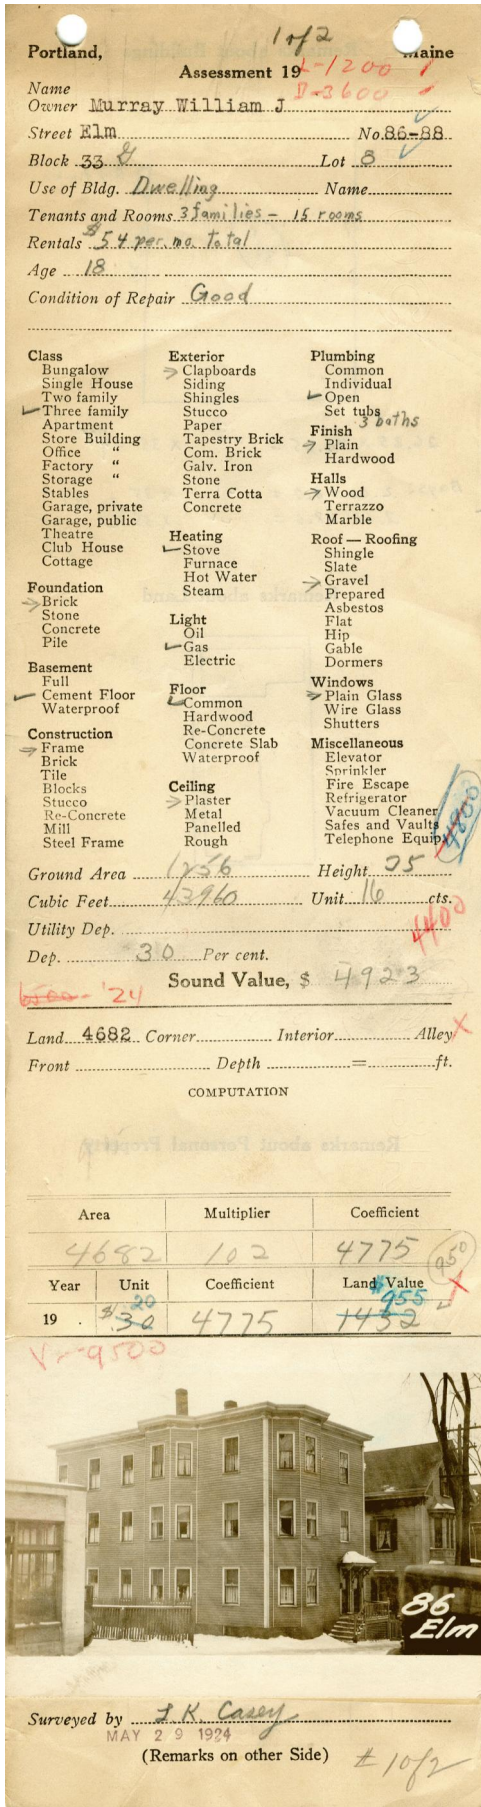 1 of 2
Portland, Maine
Assessment 19 L-1200
D-3600
Name
Owner Murray William J
Street Elm No. 86-88
Block 33 G Lot 8
Use of Bldg. Dwelling Name
Tenants and Rooms 3 families - 15 rooms
Rentals $54 per. mo. total
Age 18
Condition of Repair Good
Class
Bungalow
Single House
Two family
✓ Three family
Apartment
Store Building
Office "
Factory "
Storage "
Stables
Garage, private
Garage, public
Theatre
Club House
Cottage
Foundation
→ Brick
Stone
Concrete
Pile
Basement
Full
✓ Cement Floor
Waterproof
Construction
→ Frame
Brick
Tile
Blocks
Stucco
Re-Concrete
Mill
Steel Frame
Exterior
→ Clapboards
Siding
Shingles
Stucco
Paper
Tapestry Brick
Com. Brick
Galv. Iron
Stone
Terra Cotta
Concrete
Heating
✓ Stove
Furnace
Hot Water
Steam
Light
Oil
✓ Gas
Electric
Floor
✓ Common
Hardwood
Re-Concrete
Concrete Slab
Waterproof
Ceiling
→ Plaster
Metal
Panelled
Rough
Plumbing
Common
Individual
✓ Open
Set tubs
3 baths
Finish
→ Plain
Hardwood
Halls
→ Wood
Terrazzo
Marble
Roof — Roofing
Shingle
Slate
→ Gravel
Prepared
Asbestos
Flat
Hip
Gable
Dormers
Windows
→ Plain Glass
Wire Glass
Shutters
Miscellaneous
Elevator
Sprinkler
Fire Escape
Refrigerator
Vacuum Cleaner
Safes and Vaults
Telephone Equip.
4800
Ground Area 1256 Height 35
Cubic Feet 43960 Unit 16 cts.
Utility Dep.
4400
Dep. 30 Per cent.
Sound Value, $ 4923
6500 - '24
Land 4682 Corner Interior Alley X
Front Depth = ft.
COMPUTATION
Remarks about Personal Property
Area Multiplier Coefficient
4682 102 4775
950
Year Unit Coefficient Land Value
20 $955
19 . $.30 4775 1432
V-9500
86
Elm
Surveyed by J. K. Casey
MAY 29 1924
(Remarks on other Side)
# 1 of 2